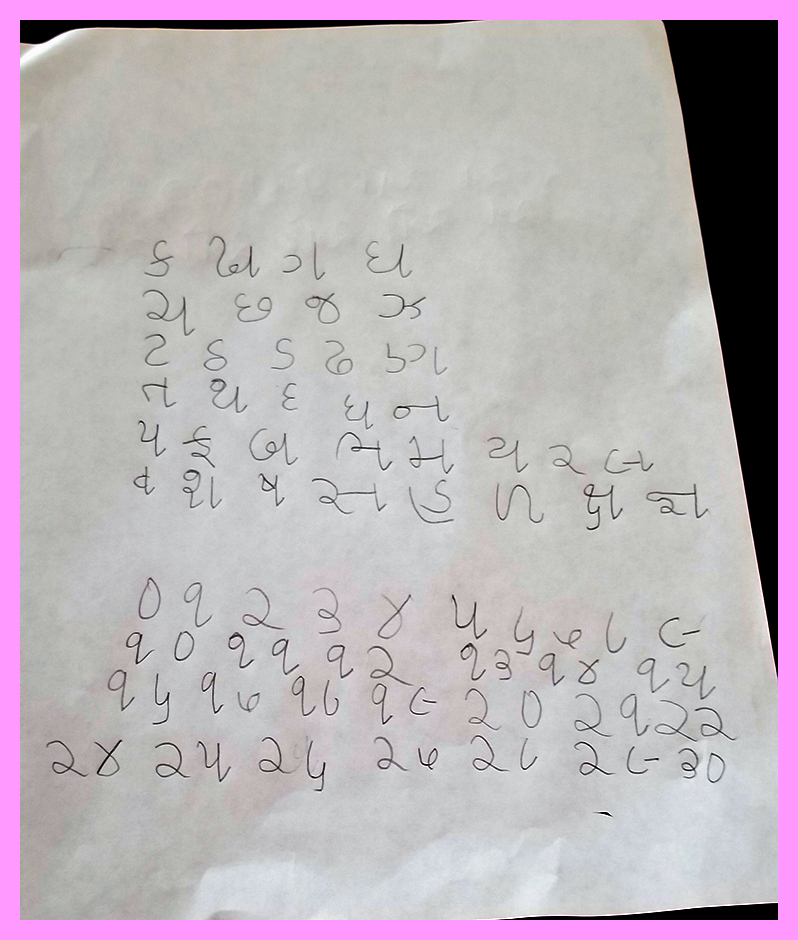 ક ખ ગ ઘ
ચ છ જ ઝ
ટ ઠ ડ ઢ ણ
ત થ દ ધ ન
પ ફ બ ભ મ ય ર લ
વ શ ષ સ હ ળ ક્ષ જ્ઞ
૦ ૧ ૨ ૩ ૪ ૫ ૬ ૭ ૮ ૯
૧૦ ૧૧ ૧૨ ૧૩ ૧૪ ૧૫
૧૬ ૧૭ ૧૮ ૧૯ ૨૦ ૨૧ ૨૨
૨૪ ૨૫ ૨૬ ૨૭ ૨૮ ૨૯ ૩૦